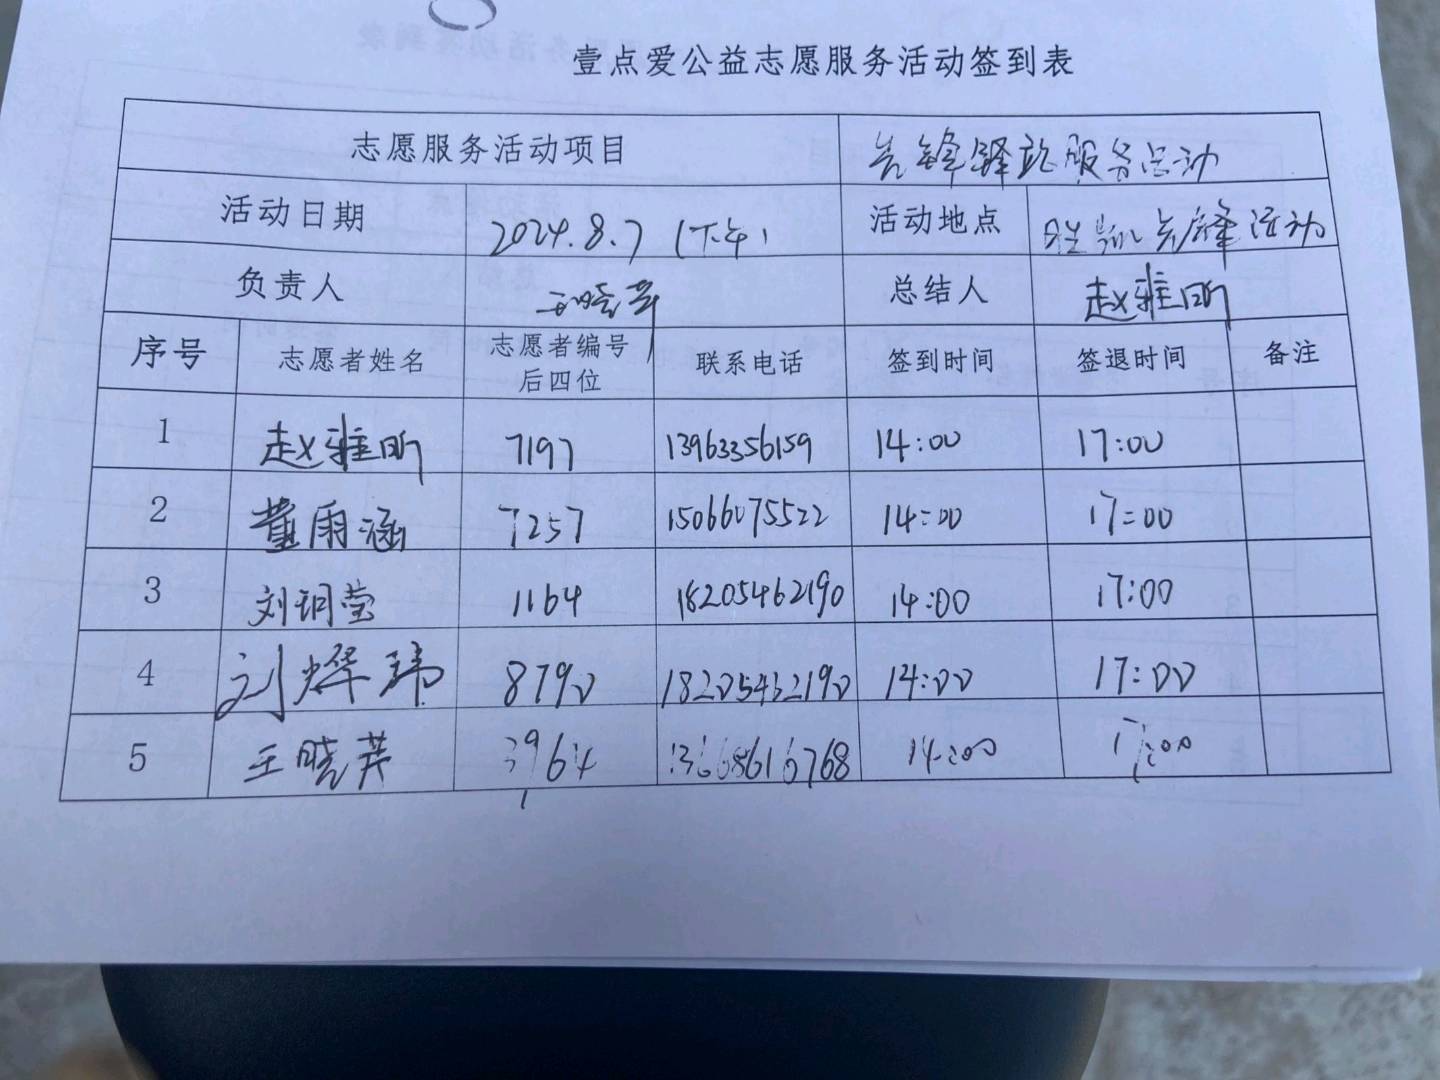 壹点爱公益志愿服务活动签到表
志愿服务活动项目 先锋驿站服务活动
活动日期 2024.8.7 (下午) 活动地点 先锋活动
负责人 王晓芹 总结人 赵雅昕
序号 志愿者姓名 志愿者编号后四位 联系电话 签到时间 签退时间 备注
1 赵雅昕 7197 13963356159 14:00 17:00
2 董雨涵 7257 15066075522 14:00 17:00
3 刘玥莹 1164 18205462190 14:00 17:00
4 刘烨玮 8790 18205462190 14:00 17:00
5 王晓芹 3964 13668616768 14:00 17:00